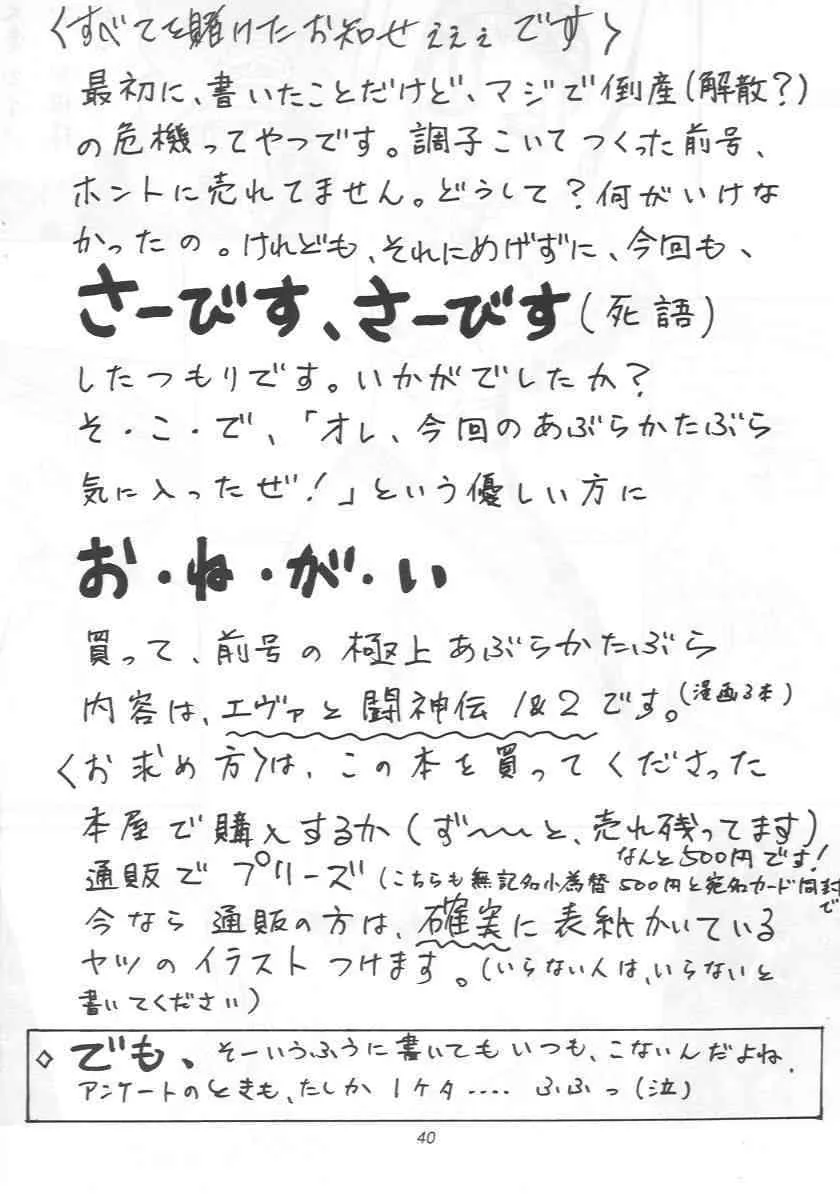 〈すべてを賭けたお知せぇぇぇです〉
最初に、書いたことだけど、マジで倒産(解散?)
の危機ってやつです。調子こいてつくった前号、
ホントに売れてません。どうして?何がいけな
かったの。けれども、それにめげずに、今回も、
さーびす、さーびす(死語)
したつもりです。いかがでしたか?
そ・こ・で、「オレ、今回のあぶらかたぶら
気に入ったぜ!」という優しい方に
お・ね・が・い
買って、前号の極上あぶらかたぶら
内容は、エヴァと闘神伝1&2です。(漫画3本)
〈お求め方〉は、この本を買ってくださった
本屋で購入するか(ず〜〜と、売れ残ってます)
なんと500円です!
通販でプリーズ(こちらも無記名小為替500円と宛名カード同封で
今なら通販の方は、確実に表紙かいている
ヤツのイラストつけます。(いらない人は、いらないと
書いてください)
◇でも、そーいうふうに書いてもいつも、こないんだよね.
アンケートのときも、たしか1ケタ‥‥ふふっ(泣)
40